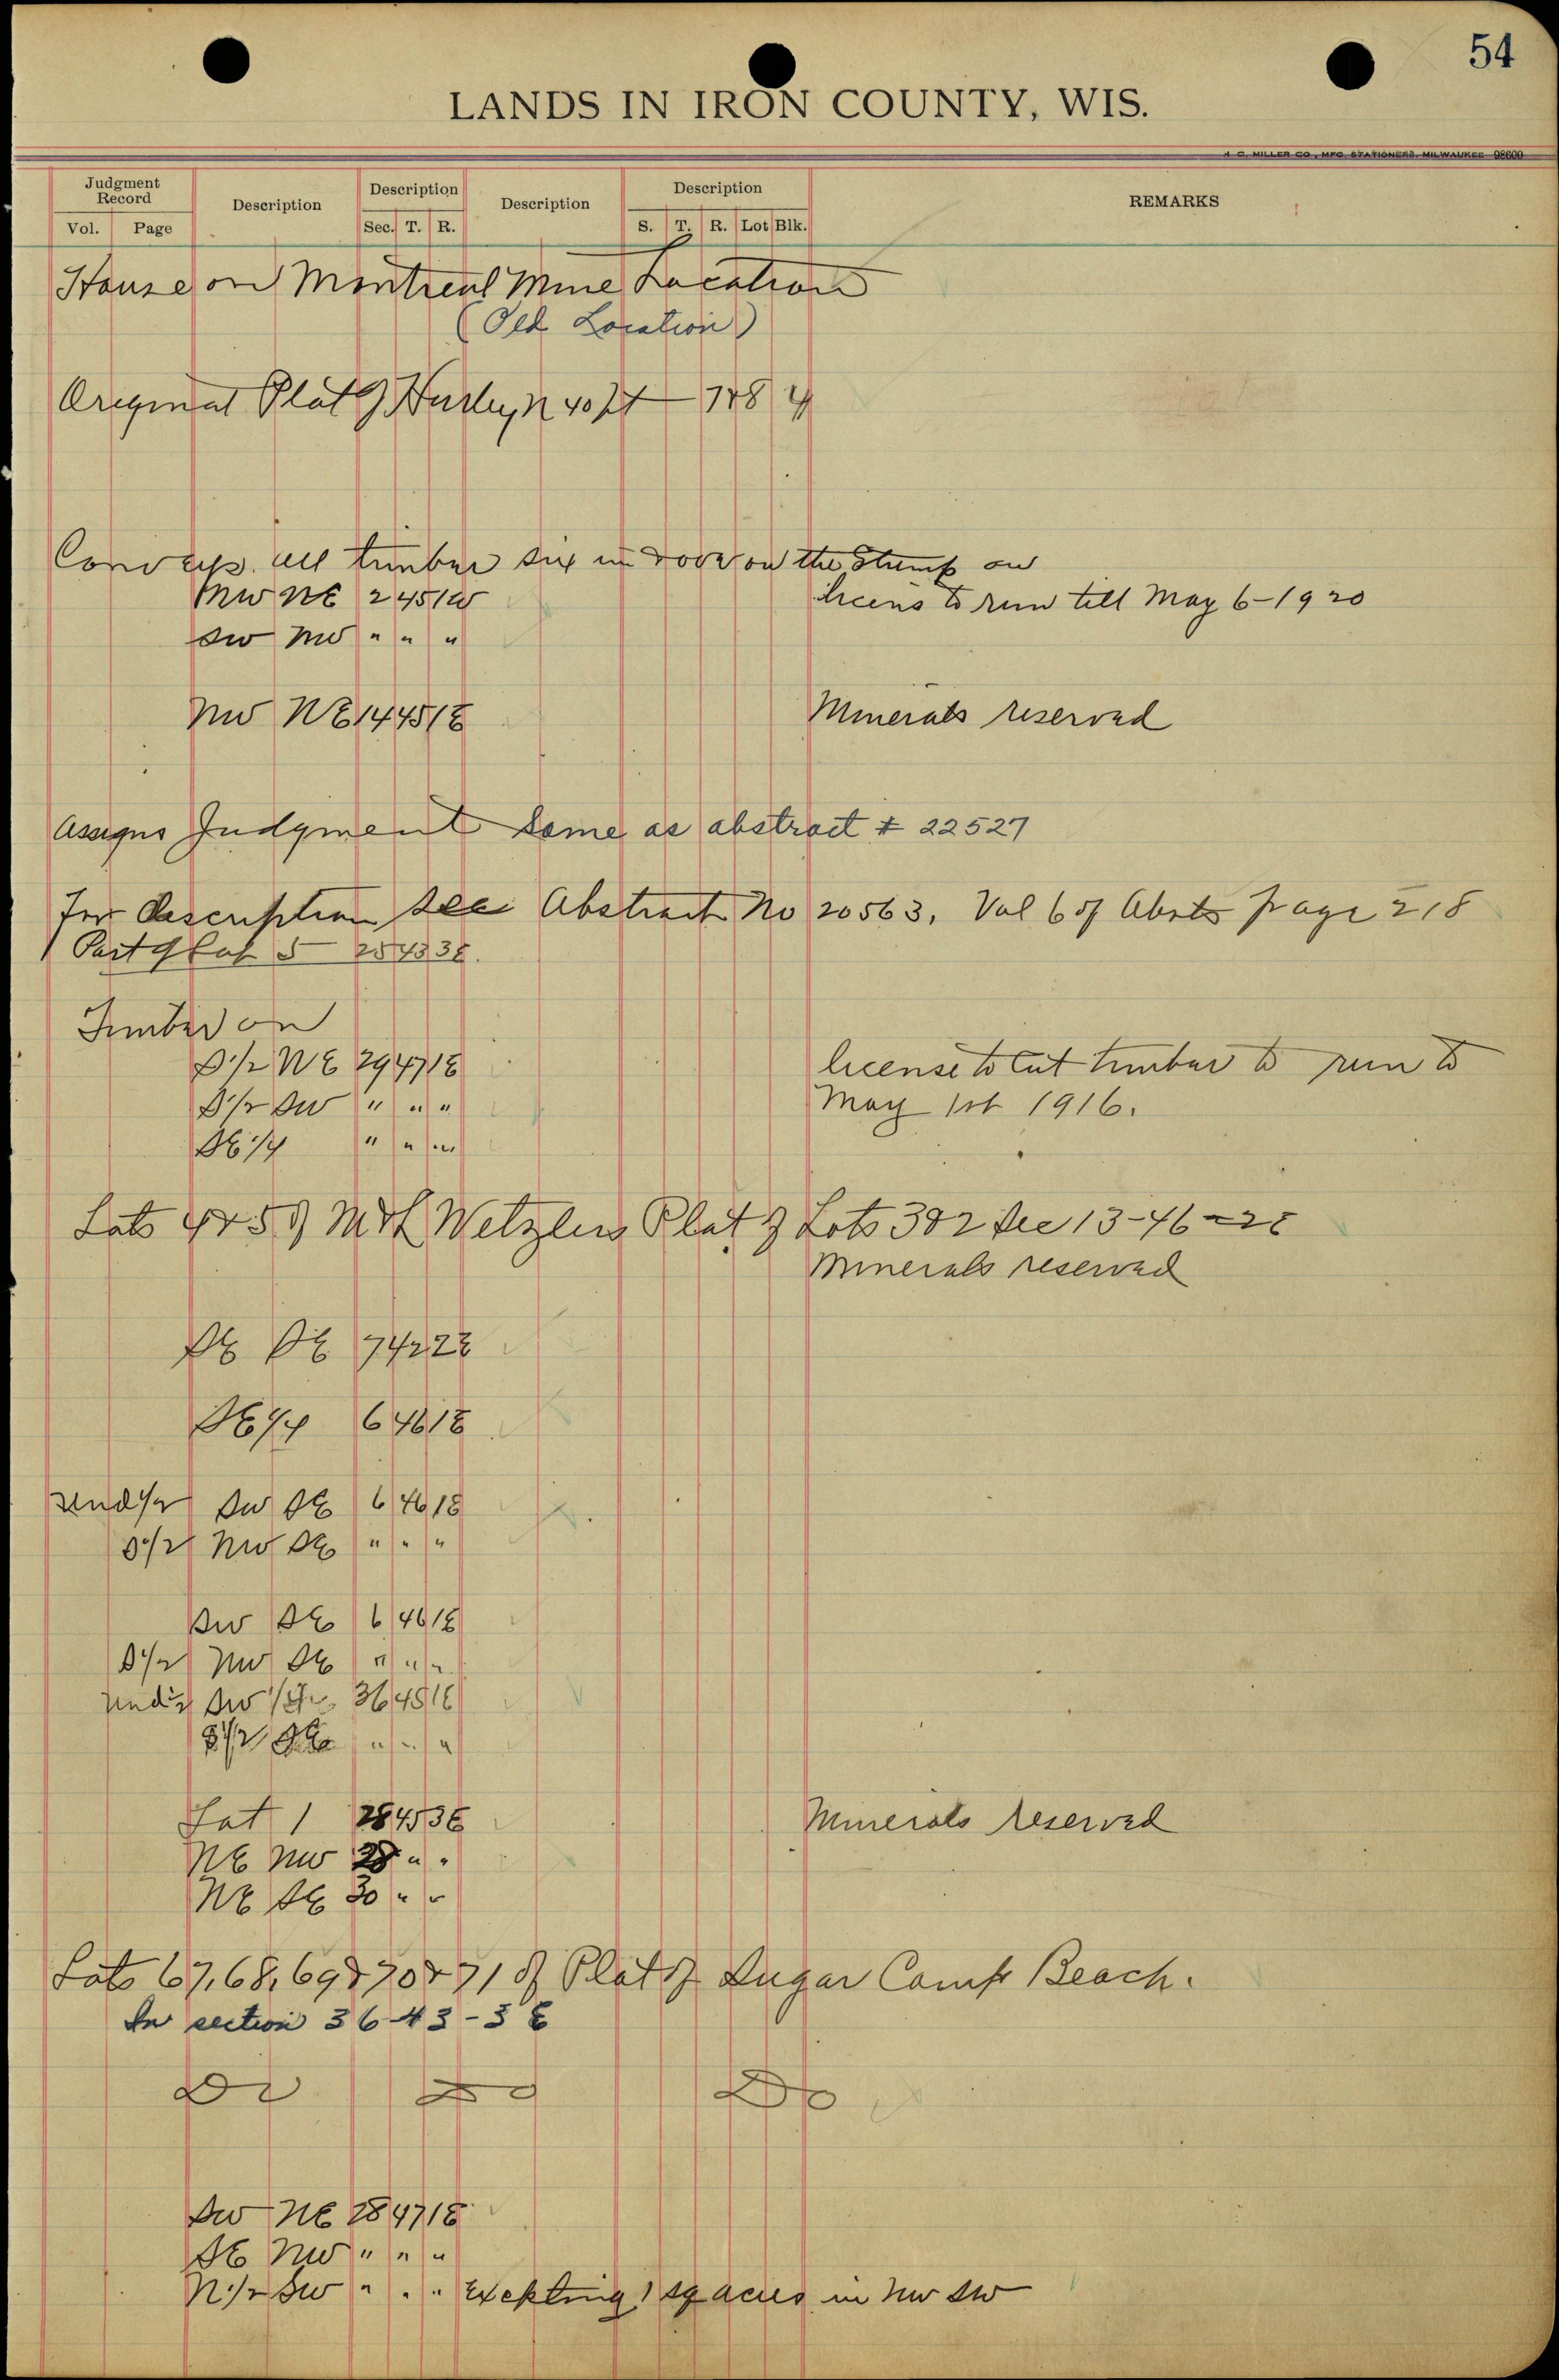 54
LANDS IN IRON COUNTY, WIS.
H. C. MILLER CO., MFG. STATIONERS, MILWAUKEE 98600
Judgment Record Description Description Description Description REMARKS
Vol. Page Sec. T. R. S. T. R. Lot Blk.
House on Montreal Mine Location
(Old Location)
Original Plat of Hurley, N 40 ft 7 & 8 4
Conveys all timber six in & over on the stump on
NW NE 2 45 1W licens to run till May 6-1920
SW NW " " "
NW NE 14 45 1E Minerals reserved
Assigns Judgment Same as abstract # 22527
For description see Abstract No 20563, Vol 6 of Absts page 218
Part of Lot 5 25 43 3E.
Timber on
S 1/2 NE 29 47 1E license to cut timber to run to
S 1/2 SW " " " May 1st 1916.
SE 1/4 " " "
Lots 4 & 5 of Wetzlers Plat of Lots 3 & 2 Sec 13-46-2E
Minerals reserved
SE SE 7 42 2E
SE 1/4 6 46 1E
Und 1/2 SW SE 6 46 1E
S 1/2 NW SE " " "
SW SE 6 46 1E
S 1/2 NW SE " " "
Und 1/2 SW 36 45 1E
S 1/2 SE " " "
Lot 1 28 45 3E Minerals reserved
NE NW 28 " "
NE SE 30 " "
Lots 67, 68, 69 & 70 & 71 of Plat of Sugar Camp Beach.
In section 36-43-3E
Do Do Do
SW NE 28 47 1E
SE NW " " "
N 1/2 SW " " " Excepting 1 sq acres in NW SW